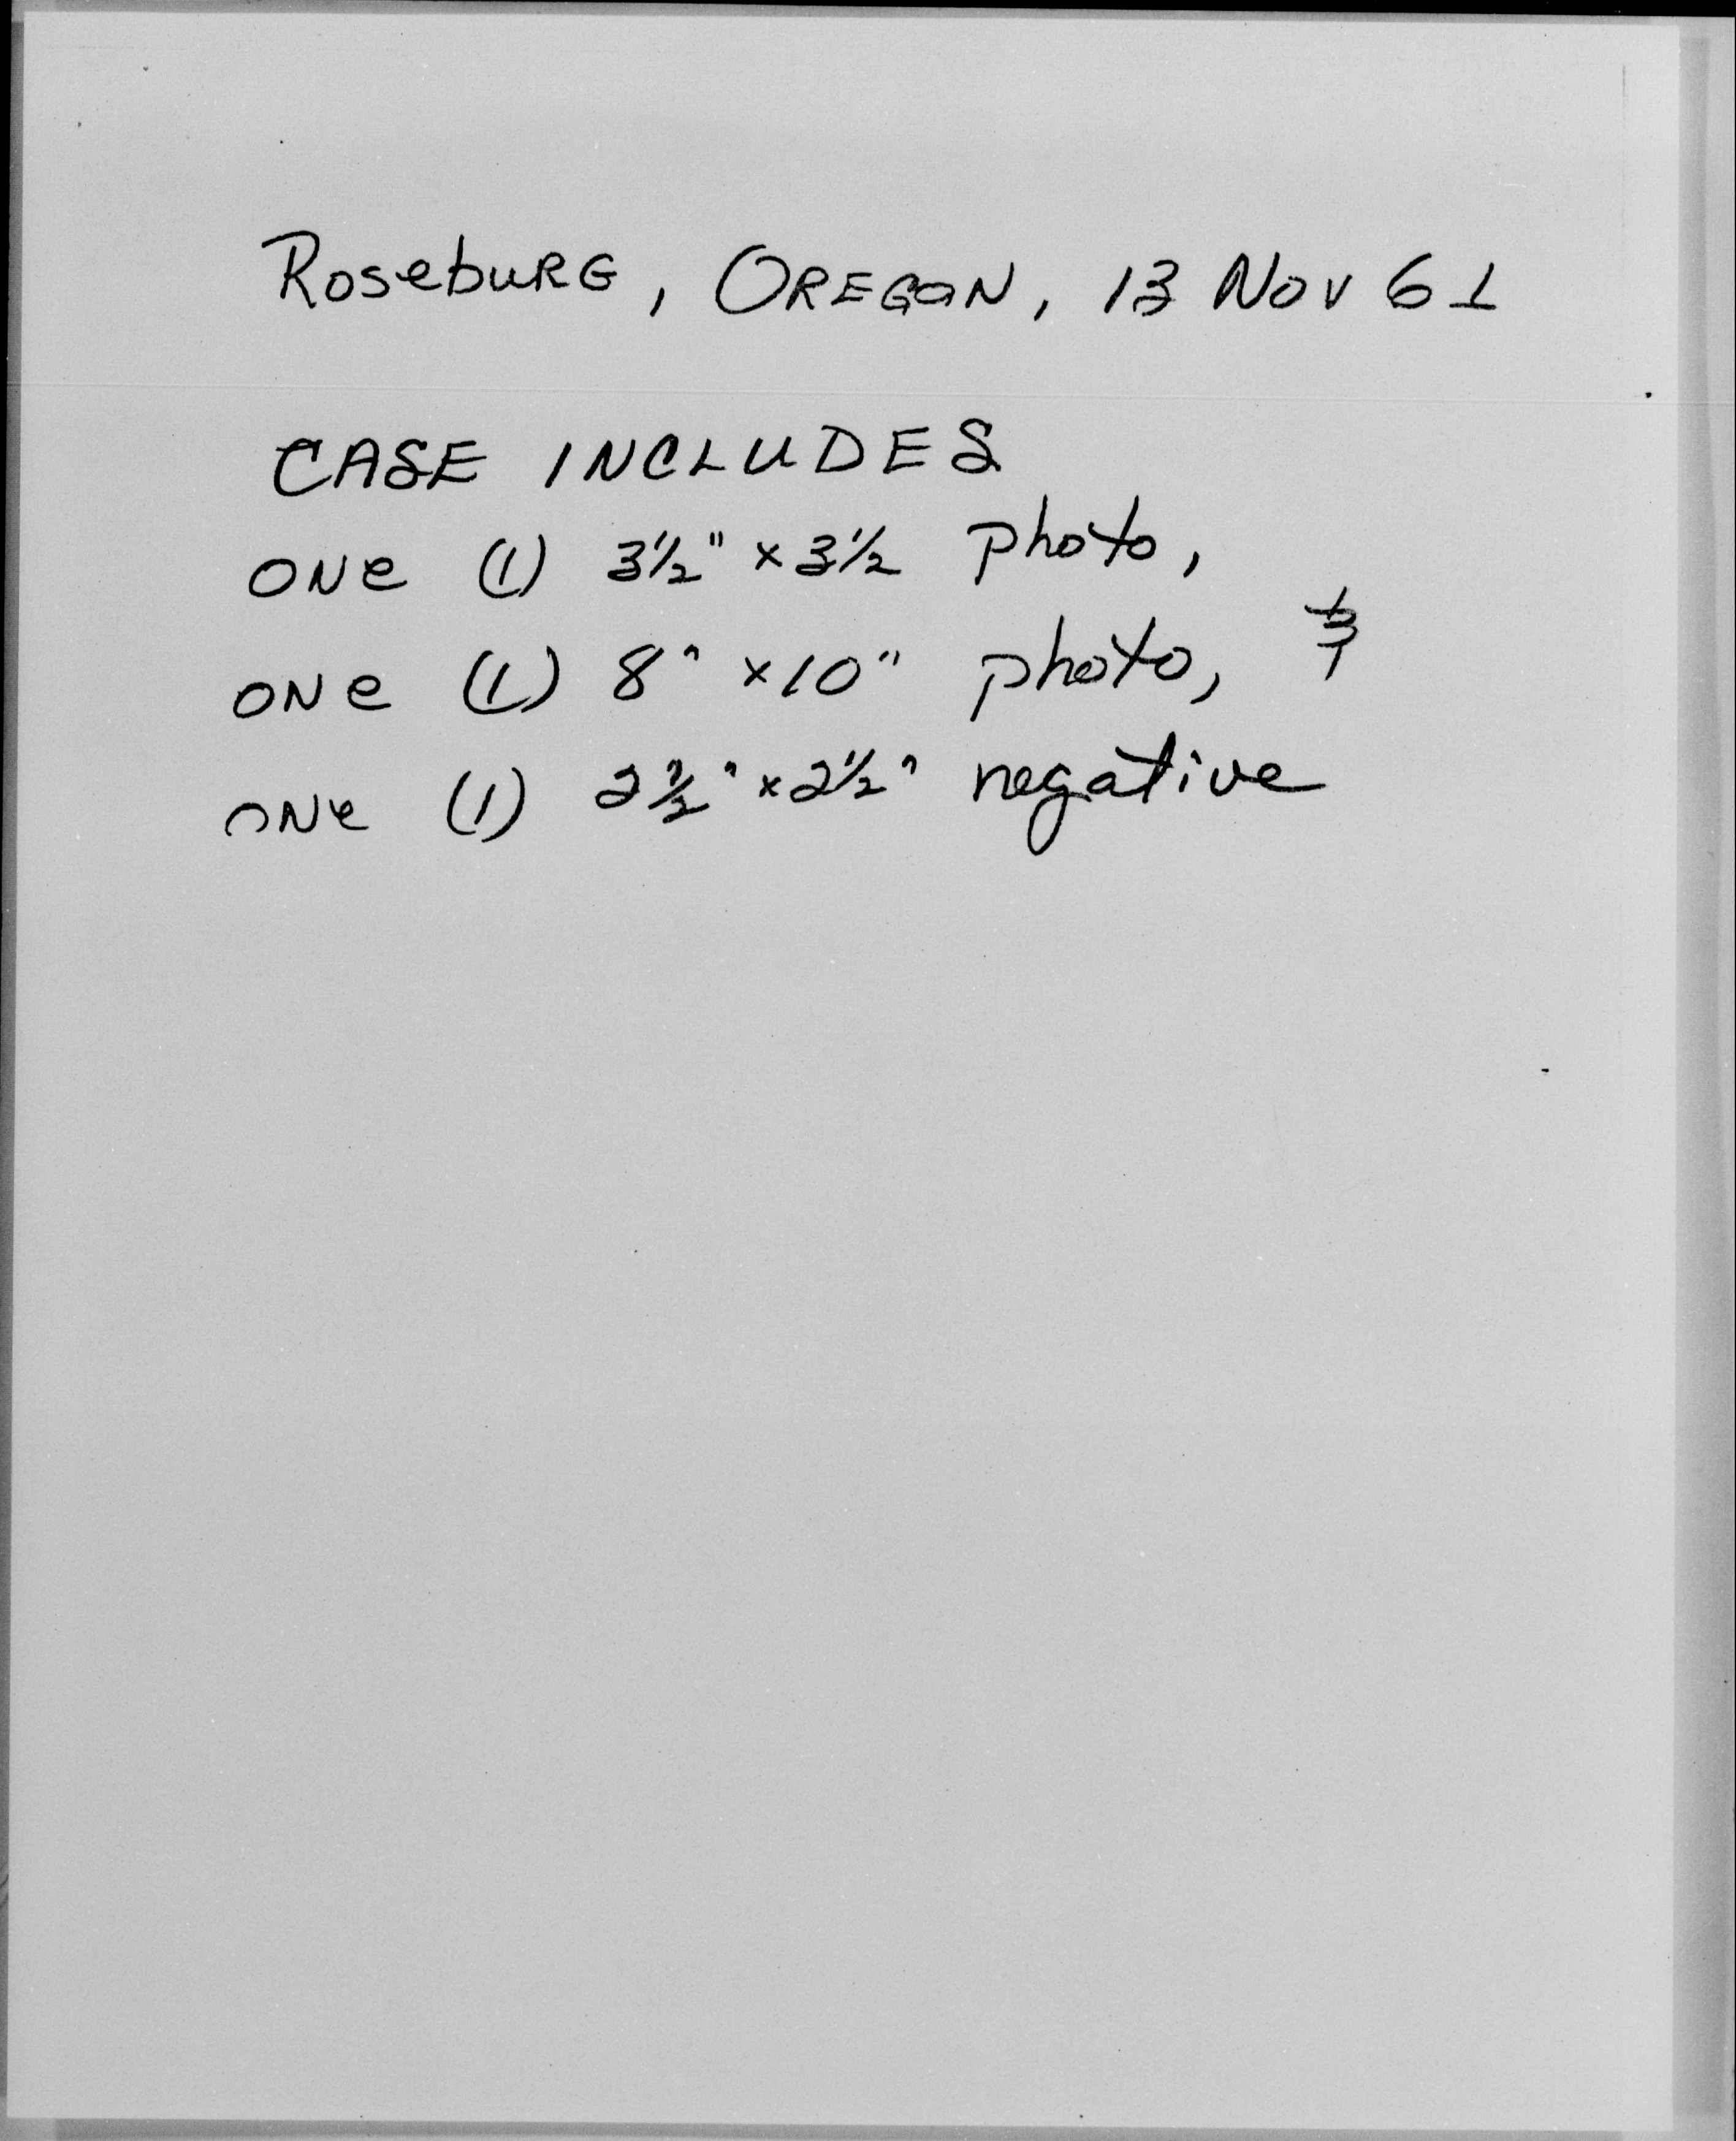 Roseburg, OREGON, 13 Nov 61
CASE INCLUDES
ONe (1) 3½" x 3½ photo,
ONe (1) 8" x 10" photo, &
ONe (1) 2½" x 2½" negative